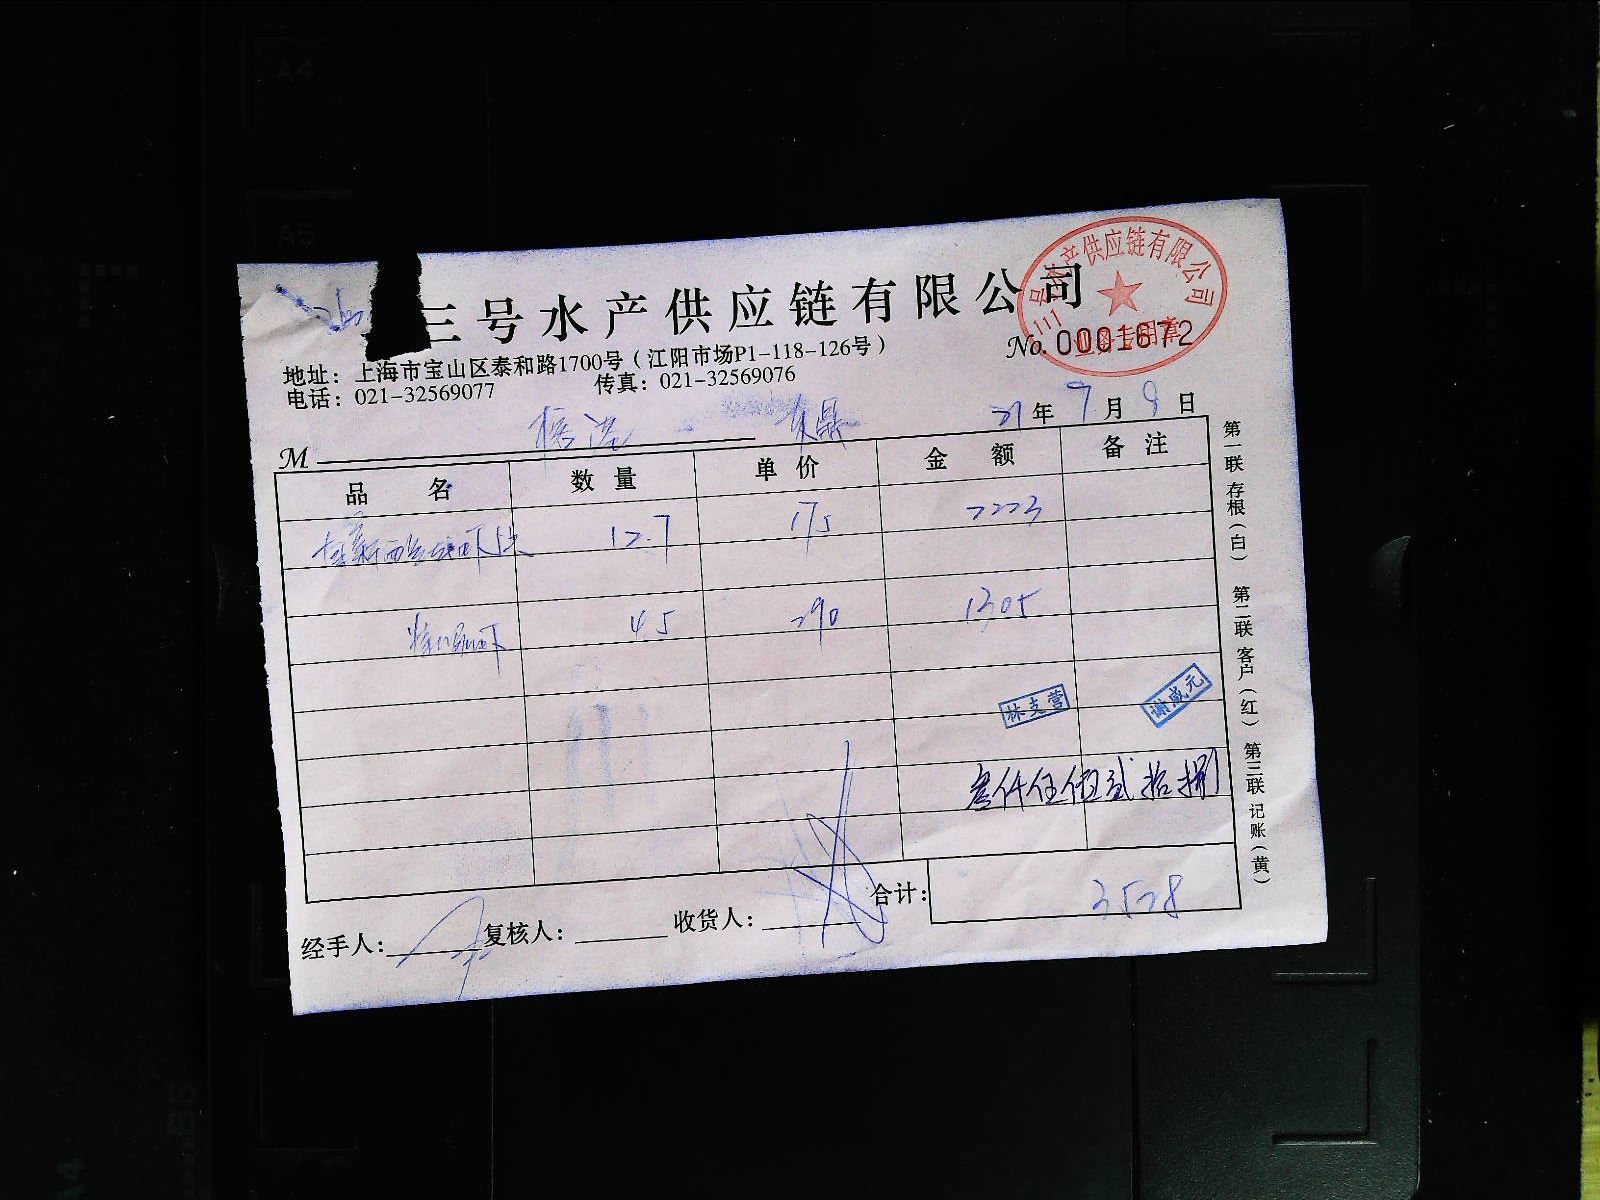 三号水产供应链有限公司
号水产供应链有限公司
业务专用章
No. 0001672
地址：上海市宝山区泰和路1700号（江阳市场P1-118-126号）
电话：021-32569077 传真：021-32569076
21年9月9日
M
品名 数量 单价 金额 备注
12.7 175 2223
4.5 290 1305
林支营 谢威元
叁仟伍佰贰拾捌
合计：3528
经手人： 复核人： 收货人：
第一联 存根（白） 第二联 客户（红） 第三联 记账（黄）